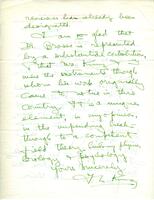 has already been
designated.
I am so glad that
Dr. is represented
by a substantial contribution,
& that Mr. King & I
were the instruments through
whom his work originally
came to us in this
country. It is a unique
element, in my opinion,
in the impending
through to a competent
field theory linking physics,
biology & psychology.
Yours sincerely,